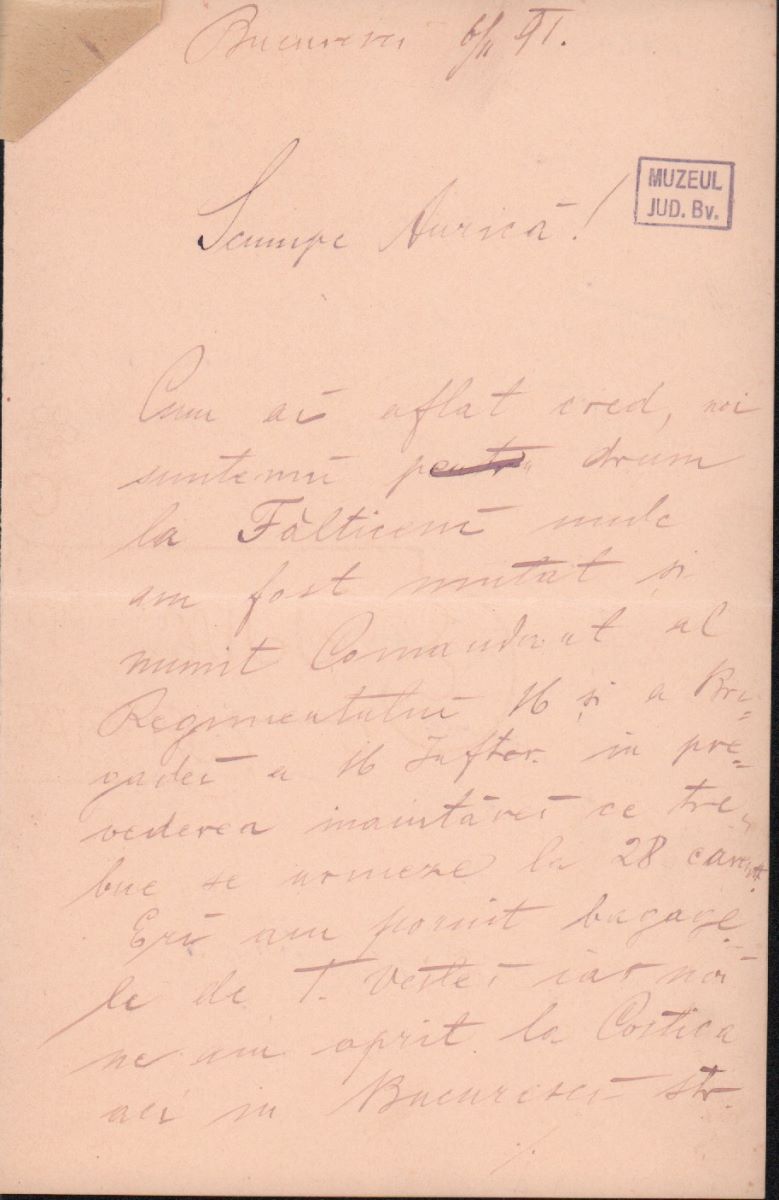 Bucuresci 6/II 91.
MUZEUL
JUD. Bv.
Scumpe Aurică!
Cum ai aflat cred, noi
suntemŭ pentru drum
la Fălticenĭ unde
am fost mutat și
numit Comandant al
Regimentuluĭ 16 și a Bri=
gadeĭ a 16 Infter. in pre=
vederea inaintăreĭ ce tre=
bue se urmeze la 28 curent.
Erĭ am pornit bagage=
le de T. iar noĭ
ne am oprit la Costica
aci in Bucurescĭ str.
./.